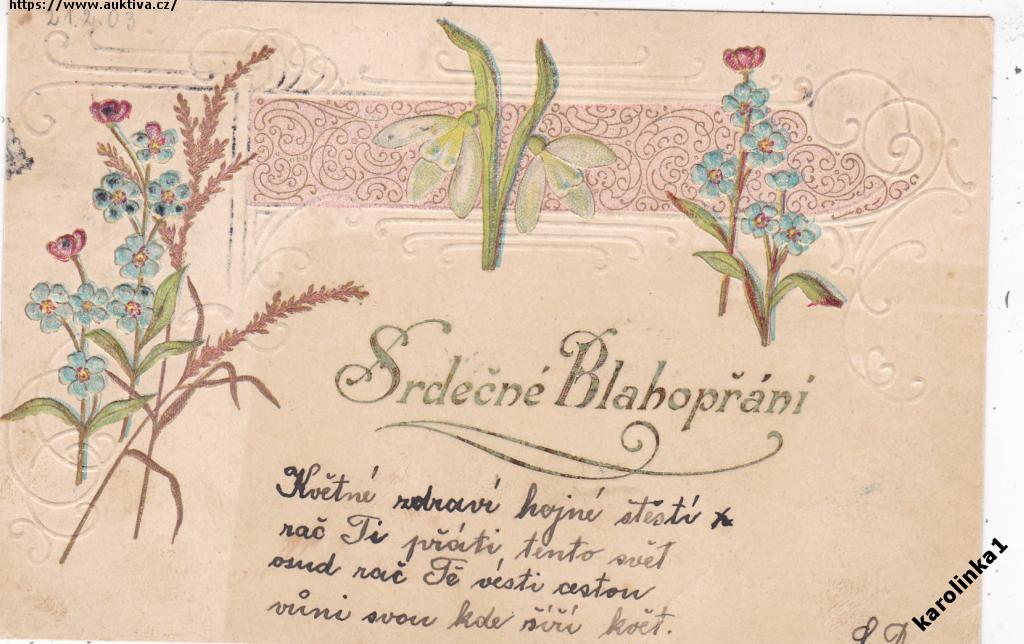 https://www.auktiva.cz/
21.2.03
Srdečné Blahopřání
Květné zdraví hojné štěstí
rač Ti přáti tento svět
osud rač Tě vésti cestou
vůni svou kde šíří květ.
karolinka1